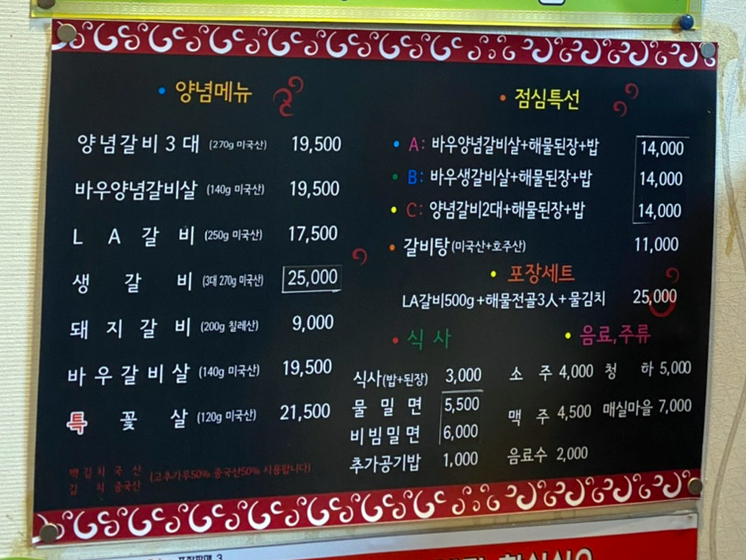 양념메뉴
양념갈비3대 (270g 미국산) 19,500
바우양념갈비살 (140g 미국산) 19,500
LA갈비 (250g 미국산) 17,500
생갈비 (3대 270g 미국산) 25,000
돼지갈비 (200g 칠레산) 9,000
바우갈비살 (140g 미국산) 19,500
특꽃살 (120g 미국산) 21,500
백김치 국산 (고추가루50% 중국산50% 사용합니다)
김치 중국산
점심특선
A: 바우양념갈비살+해물된장+밥 14,000
B: 바우생갈비살+해물된장+밥 14,000
C: 양념갈비2대+해물된장+밥 14,000
갈비탕(미국산+호주산) 11,000
포장세트
LA갈비500g+해물전골3人+물김치 25,000
식사
식사(밥+된장) 3,000
물밀면 5,500
비빔밀면 6,000
추가공기밥 1,000
음료,주류
소주 4,000 청하 5,000
맥주 4,500 매실마을 7,000
음료수 2,000